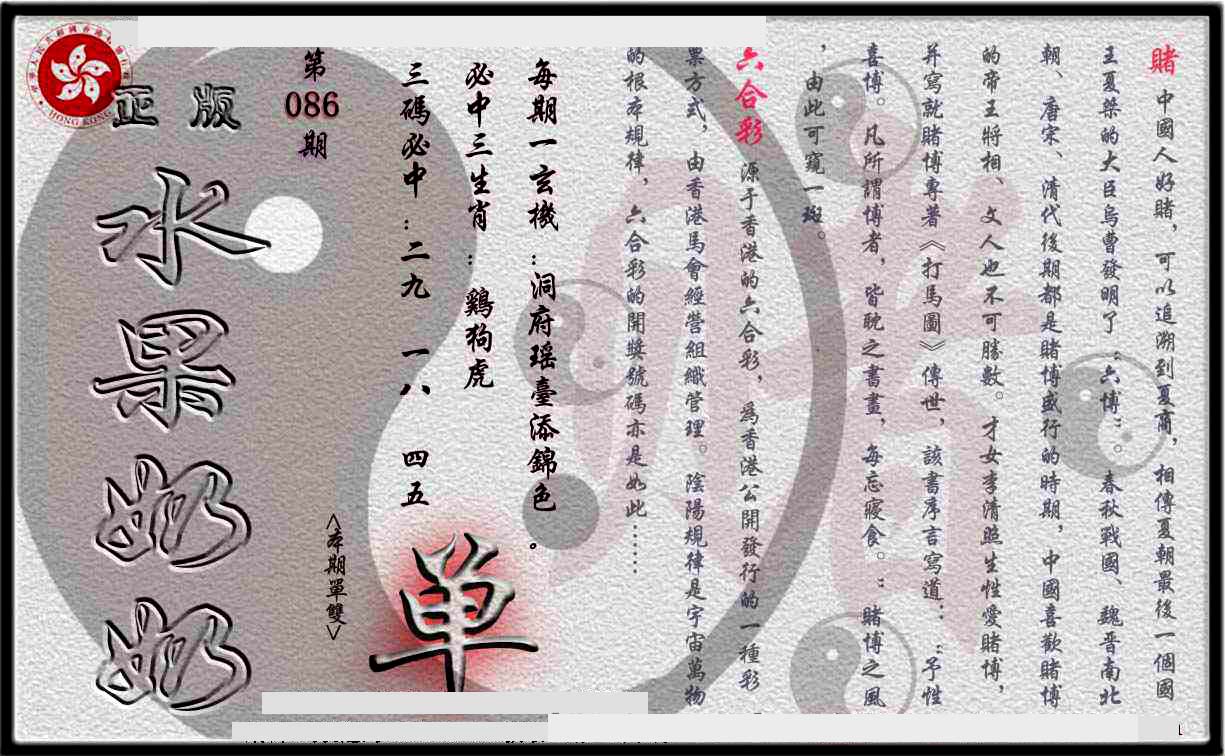 賭 中國人好賭，可以追溯到夏商，相傳夏朝最後一個國
王夏桀的大臣烏曹發明了：六博：。春秋戰國、魏晋南北
朝、唐宋、清代後期都是賭博盛行的時期，中國喜歡賭博
的帝王將相、文人也不可勝數。才女李清照生性愛賭博，
并寫就賭博專著《打馬圖》傳世，該書序言寫道：：予性
喜博。凡所謂博者，皆耽之晝書，每忘寢食。：賭博之風
，由此可窺一斑。
六合彩 源于香港的六合彩，爲香港公開發行的一種彩
票方式，由香港馬會經營組織管理。陰陽規律是宇宙萬物
的根本規律，六合彩的開獎號碼亦是如此……
每期一玄機：洞府瑶臺添錦色。
必中三生肖：鷄狗虎
三碼必中：二九 一八 四五
单
<本期單雙>
第086期
正版
水果奶奶
HONG KONG